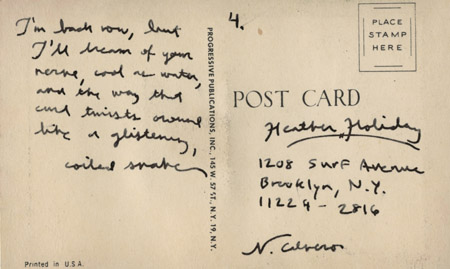 I'm back now, but
I'll dream of your
nerve, cool as water,
and the way that
curl twists around
like a glistening,
coiled snake
PROGRESSIVE PUBLICATIONS, INC., 145 W. 57 ST., N.Y. 19, N.Y.
Printed in U.S.A.
4.
PLACE
STAMP
HERE
POST CARD
Heather Holiday
1208 Surf Avenue
Brooklyn, N.Y.
11224 - 2816
N. Calvero